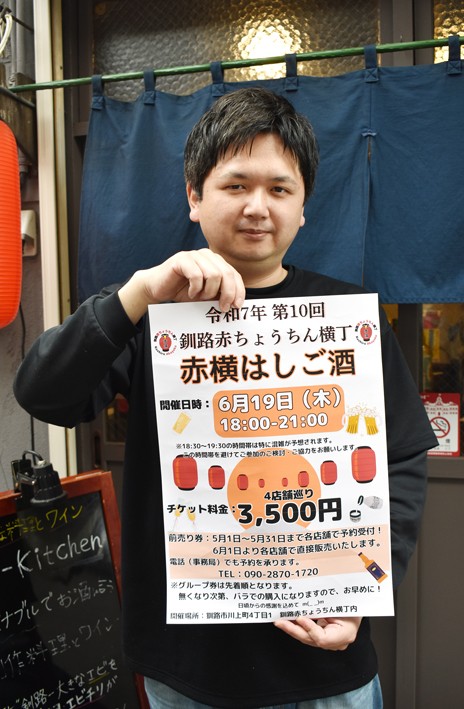 令和7年 第10回
釧路赤ちょうちん横丁
赤横はしご酒
開催日時： 6月19日（木）
18:00-21:00
※18:30~19:30の時間帯は特に混雑が予想されます。
の時間帯を避けてご参加のご検討・ご協力をお願いします。
4店舗巡り
チケット料金：3,500円
前売り券：5月1日~5月31日まで各店舗で予約受付！
6月1日より各店舗で直接販売いたします。
電話（事務局）でも予約を承ります。
TEL：090-2870-1720
※グループ券は先着順となります。
無くなり次第、バラでの購入になりますので、お早めに！
日頃からの感謝を込めて m(_ _)m
開催場所：釧路市川上町4丁目1 釧路赤ちょうちん横丁内
理とワイン
-Kitchen
ナブルでお酒
料理とワイン
釧路-大きなエビを
エビチリが